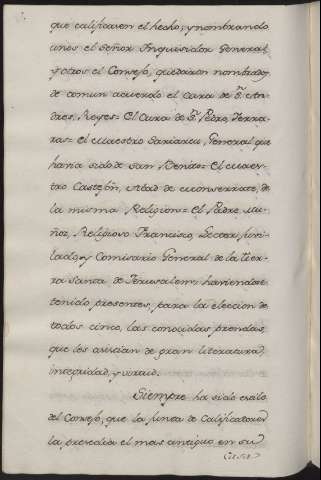 que calificasen el hecho, y nombrando
unos el Señor Inquisidor General,
y otros el Consejo, quedaron nombrados
de comun acuerdo el Cura de Sn. An-
dres, Reyes= El Cura de Sn. Pedro, Ferra-
ras= el Maestro General que
havia sido de San Benito= El Maes-
tro Castejon, Abad de Monserrate, de
la misma Religion= El Padre Mu-
ñoz, Religioso Francisco, Lector Jubi-
lado, y Comisario General de la Tier-
ra Santa de Jerusalem: haviendose
tenido presentes, para la eleccion de
todos cinco, las conocidas prendas,
que les asistian de gran literatura,
integridad, y virtud.
Siempre ha sido estilo
del Consejo, que la Junta de Calificadores
la presedia el mas antiguo en su